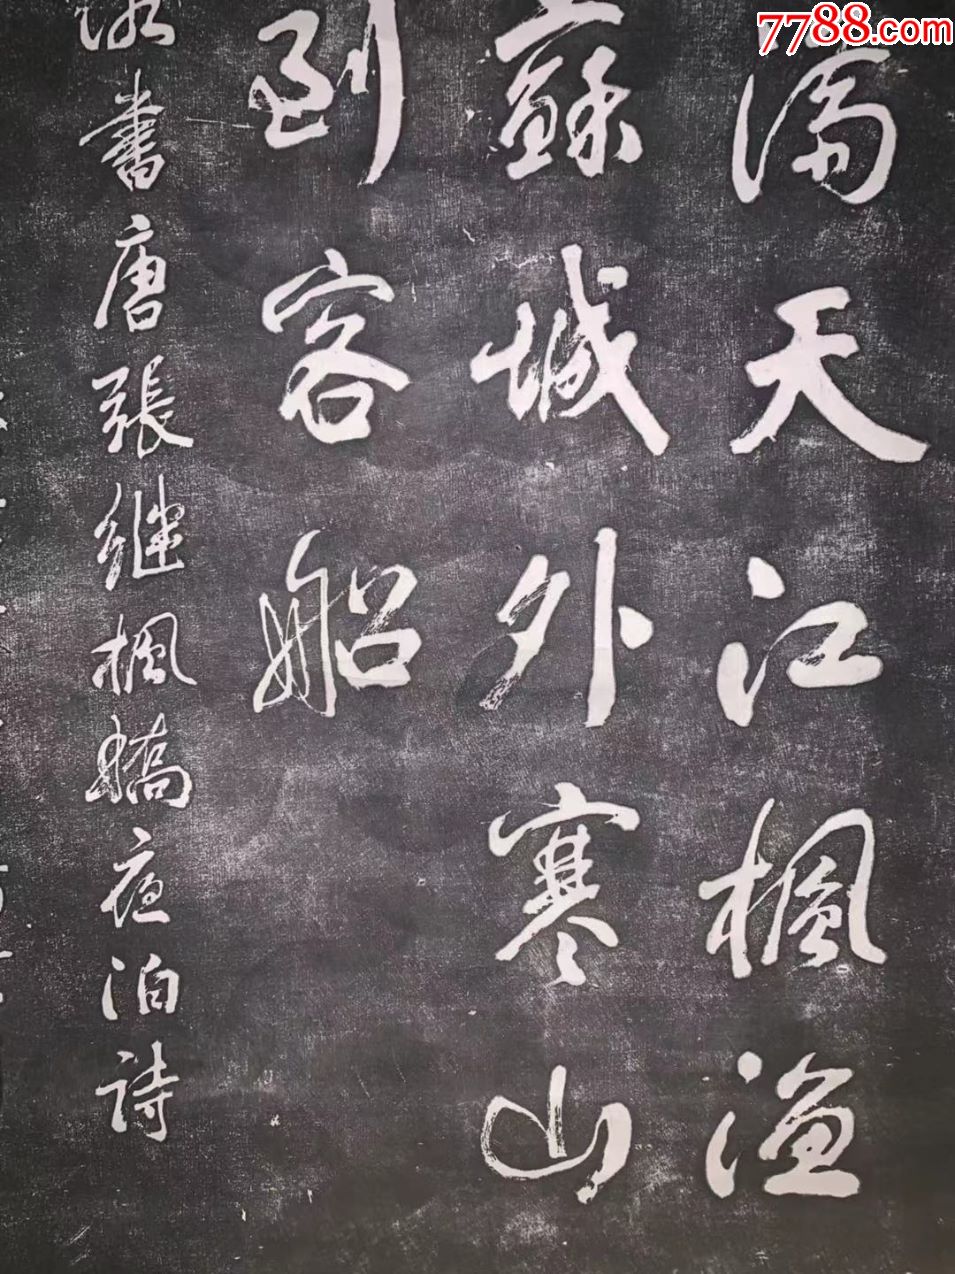 7788.com
滿天江楓漁
蘇城外寒山
到客船
書唐張継楓橋夜泊詩